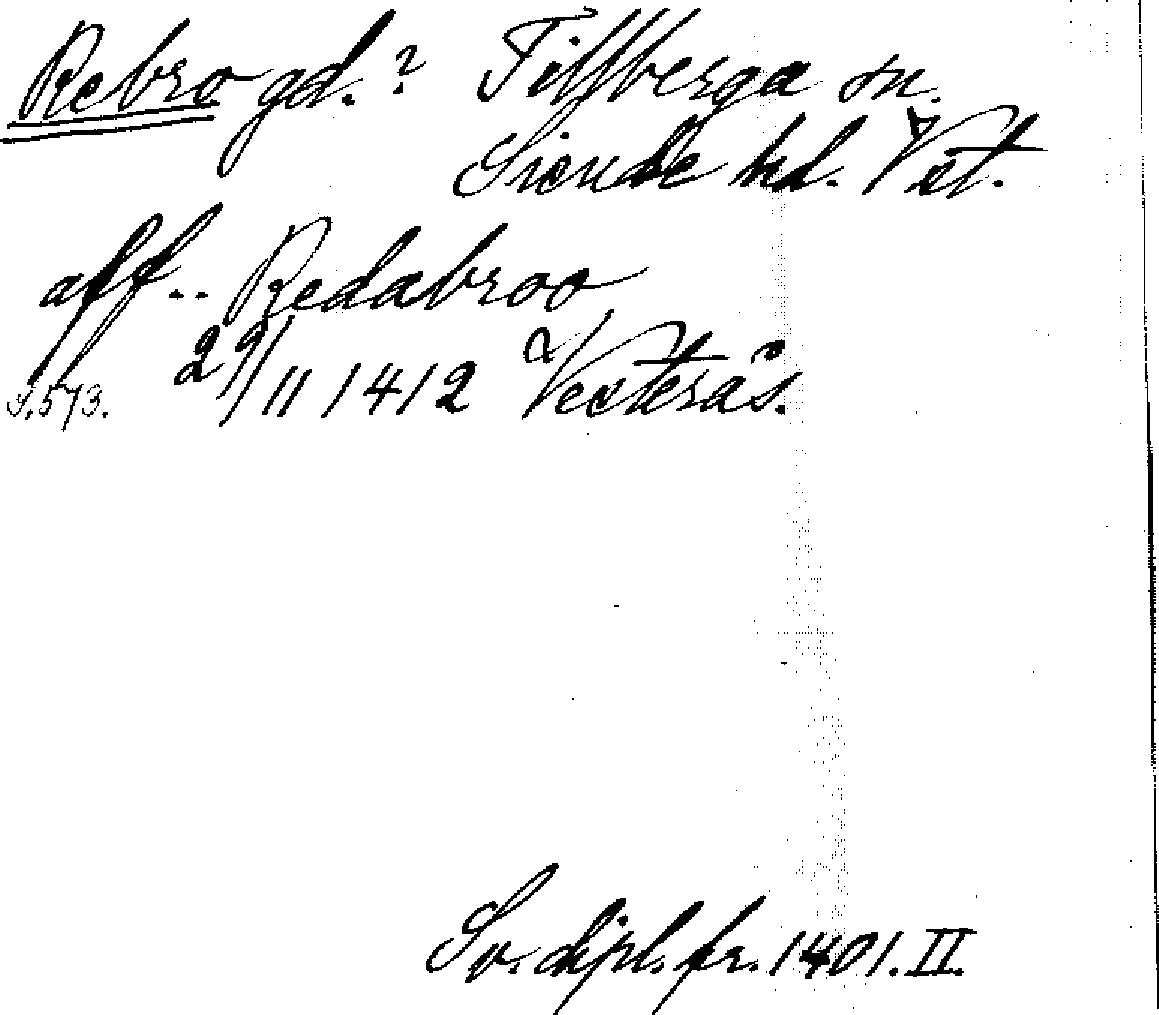 Rebro gd.? Tillberga sn.
Siende hd. Vst.
aff .. Redabroo
29/11 1412 Vesterås.
S. 573.
Sv. dipl. fr. 1401. II.